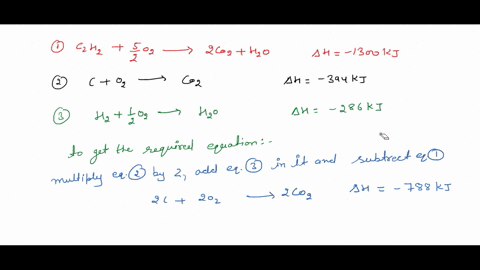 ① C₂H₂ + 5/2 O₂ ⟶ 2CO₂ + H₂O ΔH = -1300 KJ
② C + O₂ ⟶ CO₂ ΔH = -394 KJ
③ H₂ + 1/2 O₂ ⟶ H₂O ΔH = -286 KJ
To get the required equation:-
multiply eq. ② by 2, add eq. ③ in it and subtract eq ①
2C + 2O₂ ⟶ 2CO₂ ΔH = -788 KJ